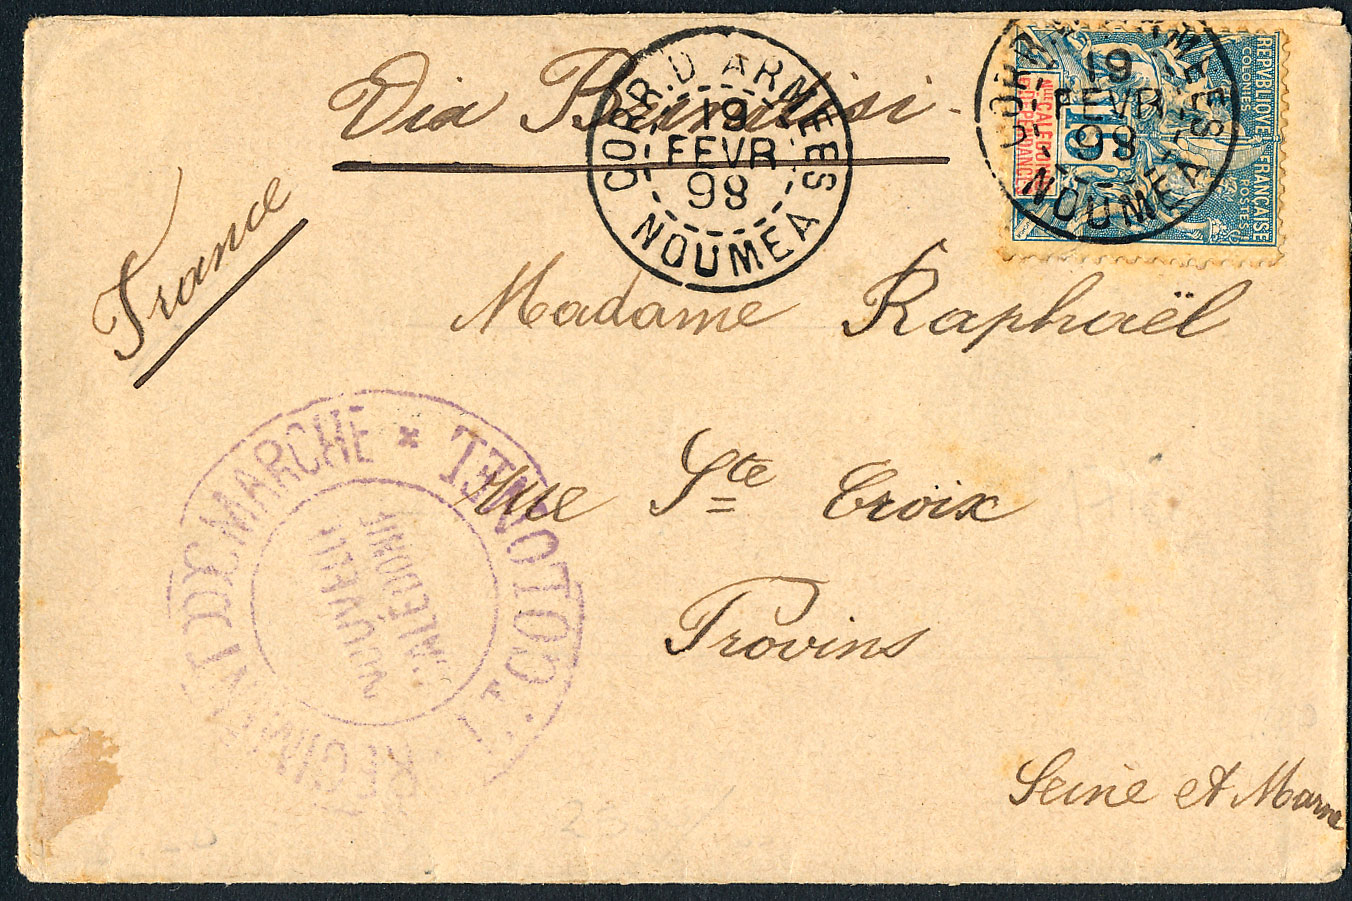 Via Brindisi
France
CORR. D'ARMEES
19
FEVR
98
NOUMEA
CORR. D'ARMEES
19
FEVR
98
NOUMEA
REPUBLIQUE FRANCAISE
COLONIES POSTES
Nlle CALEDONIE
ET DEPENDANCES
15
Madame Raphaël
Rue Ste Croix
Provins
Seine et Marne
RÉGIMENT DE MARCHE * LT. COLONEL
NOUVELLE
CALÉDONIE